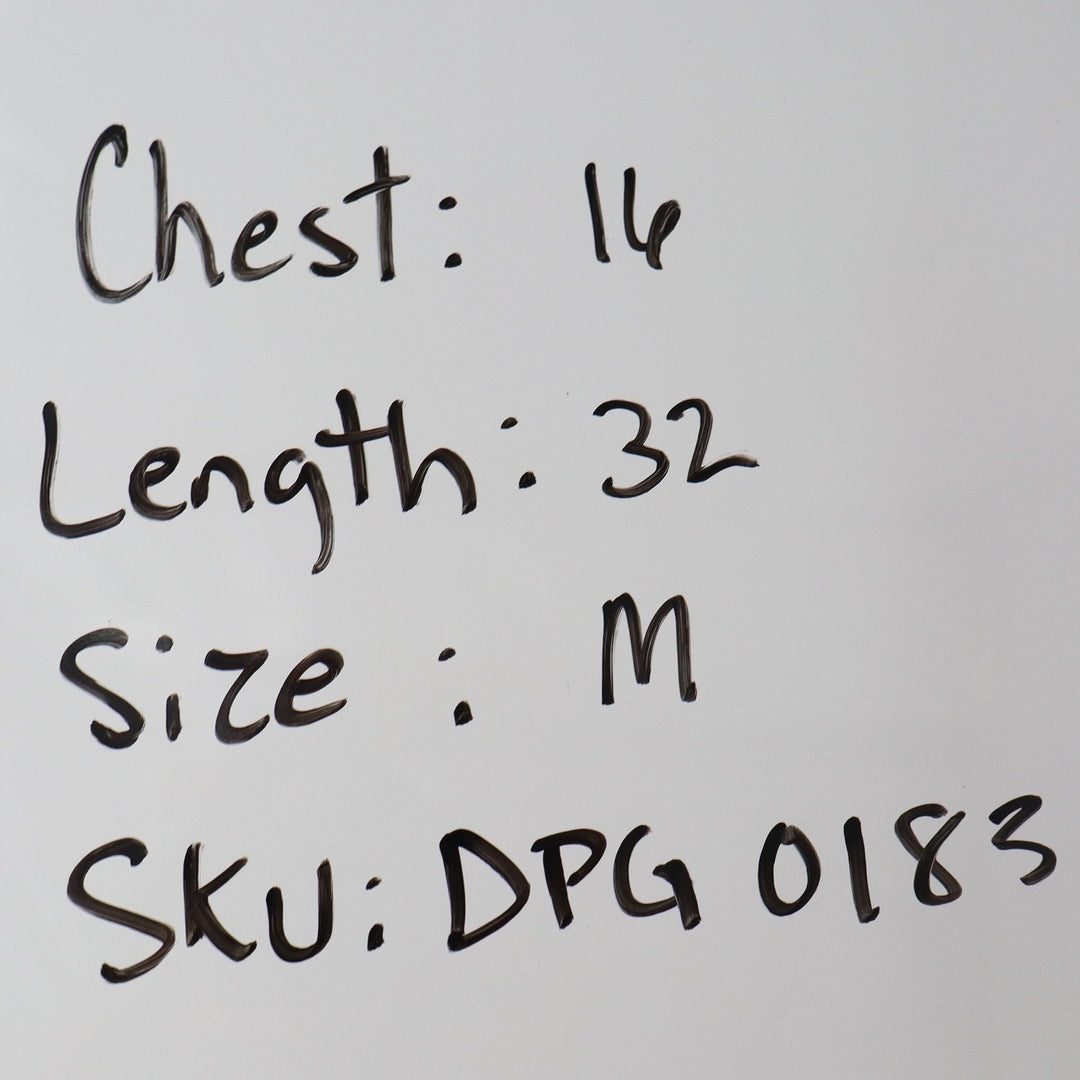 Chest: 16
Length: 32
Size : M
SKU: DPG 0183